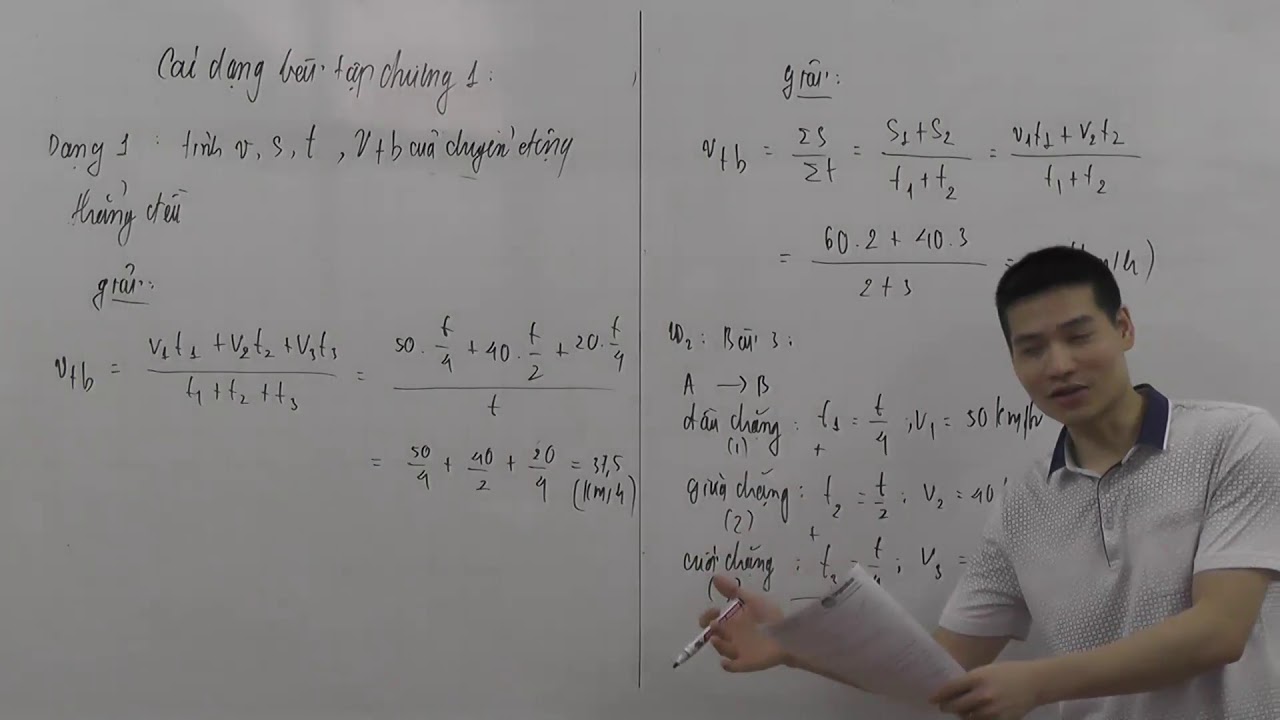 Các dạng bài tập chương 1:
Dạng 1 : tính v, s, t , Vtb của chuyển động
thẳng đều
giải:
Vtb = (V1t1 + V2t2 + V3t3)/(t1 + t2 + t3) = (50 . t/4 + 40 . t/2 + 20 . t/4)/t
= 50/4 + 40/2 + 20/4 = 37,5
(km/h)
giải:
Vtb = ΣS/Σt = (S1 + S2)/(t1 + t2) = (v1t1 + V2t2)/(t1 + t2)
= (60 . 2 + 40 . 3)/(2 + 3) = /h)
Bài 3:
A → B
đầu chặng : t1 = t/4 ; V1 = 50 km/h
(1) +
giữa chặng : t2 = t/2 ; V2 = 40
(2) +
cuối chặng : = t/4 ; V3 =